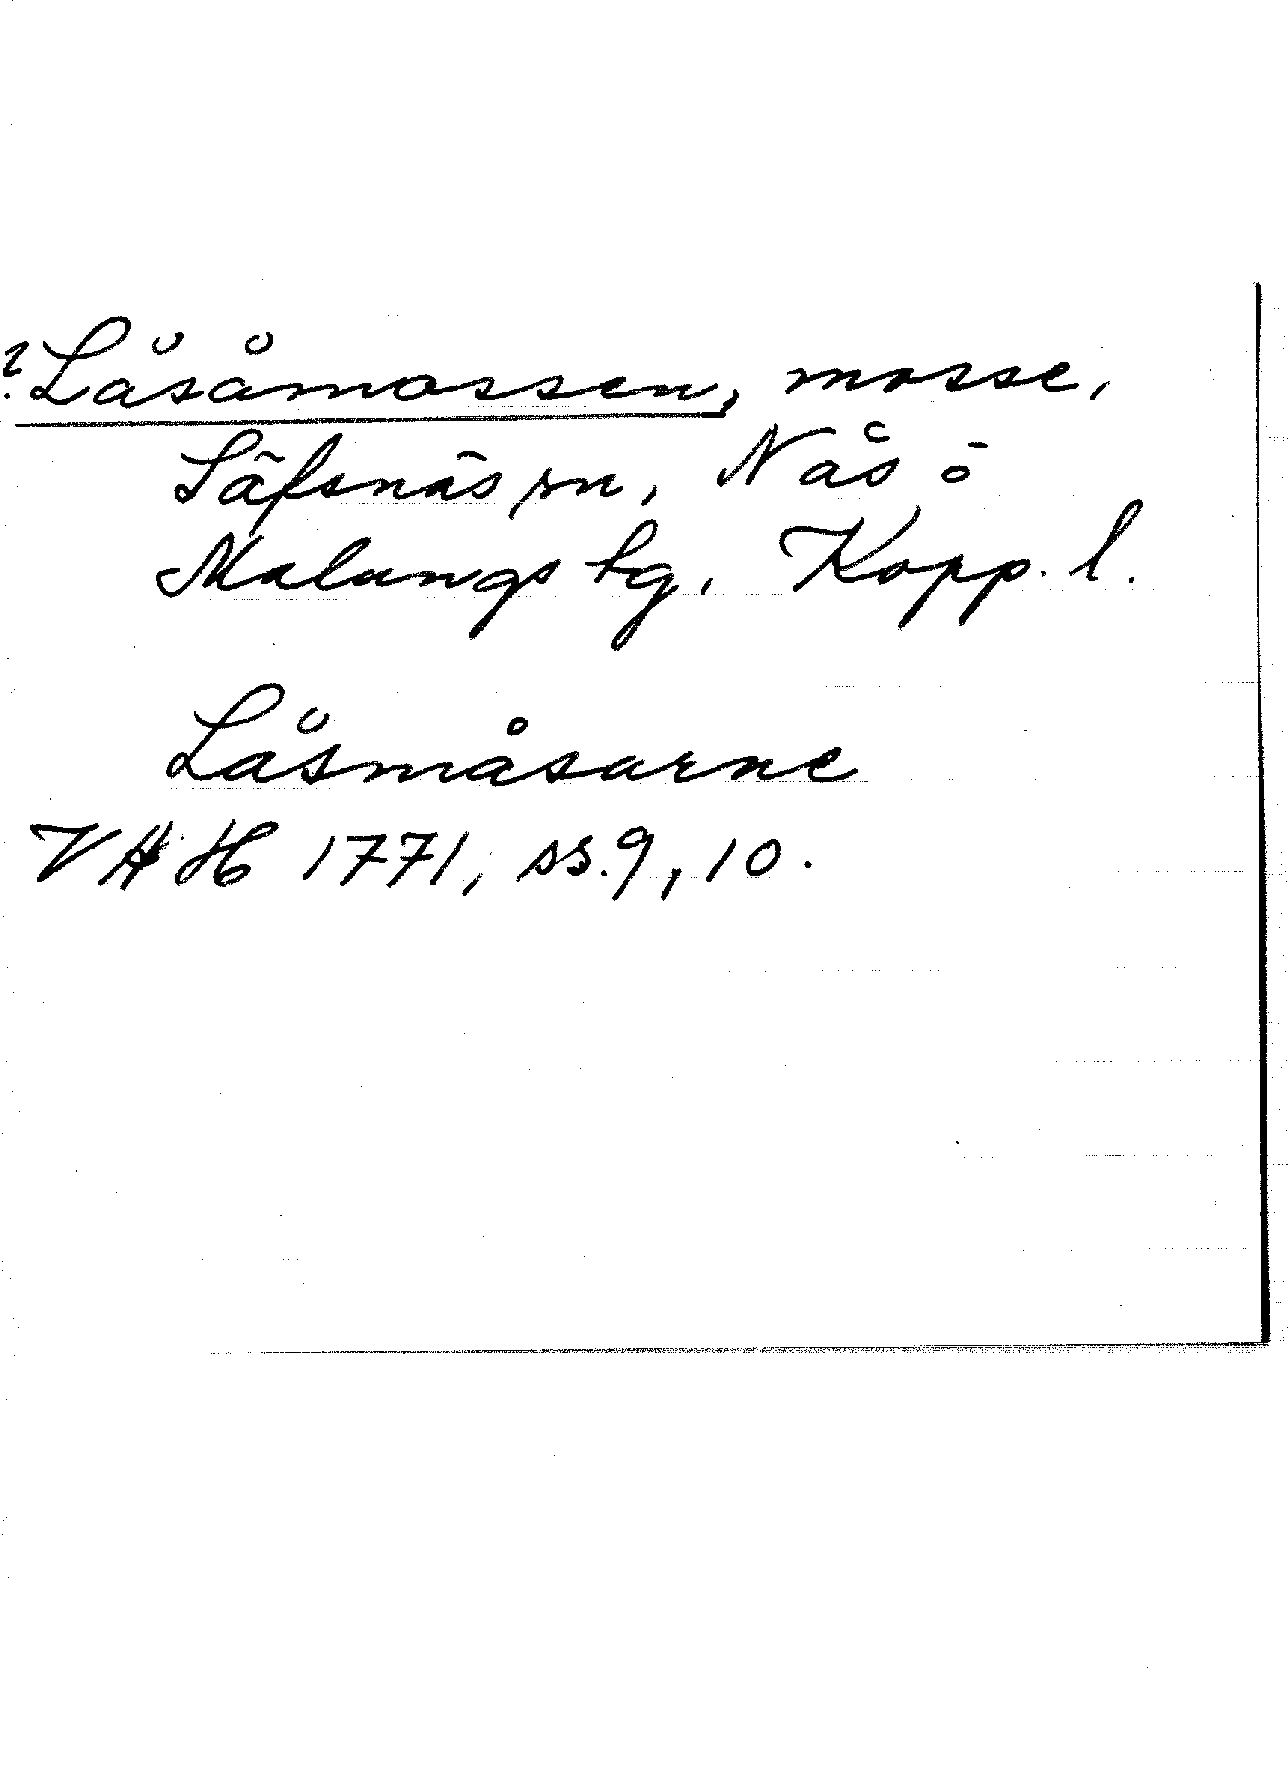 ? Låsåmossen, mosse,
Säfsnäs sn, Nås o
Malungs tg. Kopp. l.
Låsmåsarne
VHH 1771, ss. 9, 10.